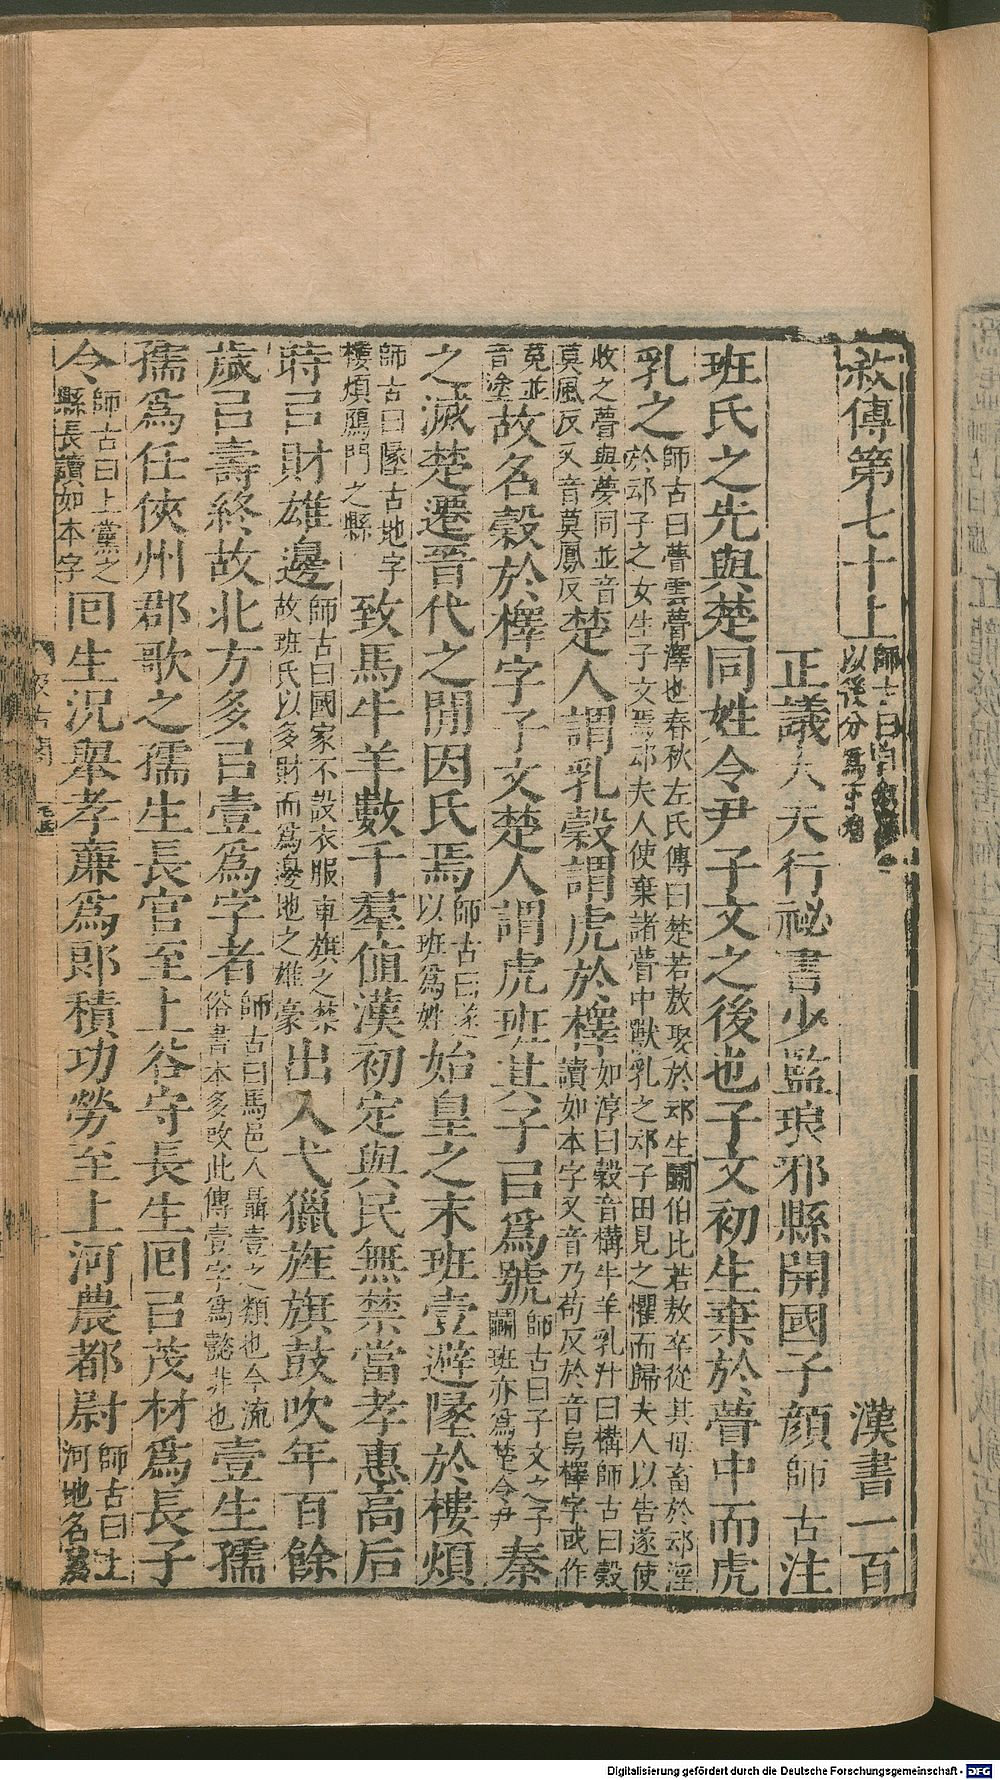 敘傳第七十上師古曰自敘以後分爲下卷 漢書一百
正議大夫行祕書少監琅邪縣開國子顏師古注
班氏之先與楚同姓令尹子文之後也子文初生棄於瞢中而虎
乳之師古曰瞢雲瞢澤也春秋左氏傳曰楚若敖娶於䢵生鬬伯比若敖卒從其母畜於䢵淫於䢵子之女生子文焉䢵夫人使棄諸瞢中獸乳之䢵子田見之懼而歸夫人以告遂使
收之瞢與夢同並音莫風反又音莫鳳反楚人謂乳穀謂虎於檡如淳曰穀音構牛羊乳汁曰構師古曰穀讀如本字又音乃苟反於音烏檡字或作
菟並音塗故名穀於檡字子文楚人謂虎班其子㠯爲號師古曰子文之子鬬班亦爲楚令尹秦
之滅楚遷晉代之閒因氏焉師古曰遂以班爲姓始皇之末班壹避墬於樓煩
師古曰墬古地字樓煩鴈門之縣致馬牛羊數千羣值漢初定與民無禁當孝惠高后
時㠯財雄邊師古曰國家不設衣服車旗之禁故班氏以多財而爲邊地之雄豪出入弋獵旌旗鼓吹年百餘
歲㠯壽終故北方多㠯壹爲字者師古曰馬邑人聶壹之類也今流俗書本多改此傳壹字爲懿非也壹生孺
孺爲任俠州郡歌之孺生長官至上谷守長生回㠯茂材爲長子
令師古曰上黨之縣長讀如本字回生況舉孝廉爲郎積功勞至上河農都尉師古曰上河地名
Digitalisierung gefördert durch die Deutsche Forschungsgemeinschaft - DFG